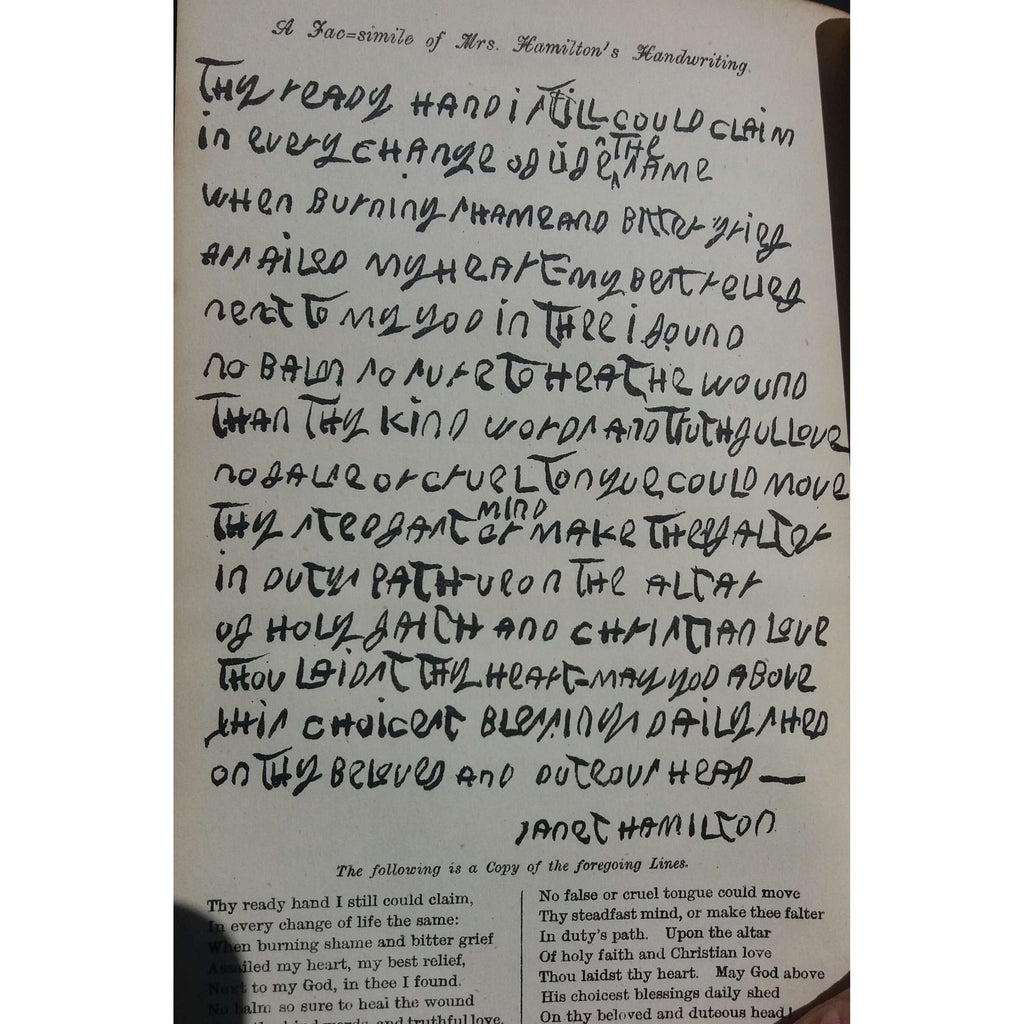 A Fac=simile of Mrs. Hamilton's Handwriting.
THy reADy HAND i sTiLL couLD cLAim
in every cHAnge of life THe sAme
wHen Burning sHAme AnD BitTer grief
AssAileD my HeArT my Best relief
nexT To my goD in THee i founD
no BALm so sure To HeAL THe wounD
THAn THy KinD worDs AnD TruTHfuL Love
no fALse or crueL Tongue couLD move
THy sTeDfAsT minD or mAKe THee fALTer
in DuTys pATH-upon THe ALTAr
of HoLy fAiTH AnD cHrisTiAn Love
THou LAiDsT THy HeArT-mAy goD ABove
His cHoicesT BLessings DAiLy sHeD
on THy BeLoveD AnD DuTeous HeAD —
JAneT HAmiLTon
The following is a Copy of the foregoing Lines.
Thy ready hand I still could claim,
In every change of life the same:
When burning shame and bitter grief
Assailed my heart, my best relief,
Next to my God, in thee I found.
No balm so sure to heal the wound
kind words, and truthful love,
No false or cruel tongue could move
Thy steadfast mind, or make thee falter
In duty's path. Upon the altar
Of holy faith and Christian love
Thou laidst thy heart. May God above
His choicest blessings daily shed
On thy beloved and duteous head!